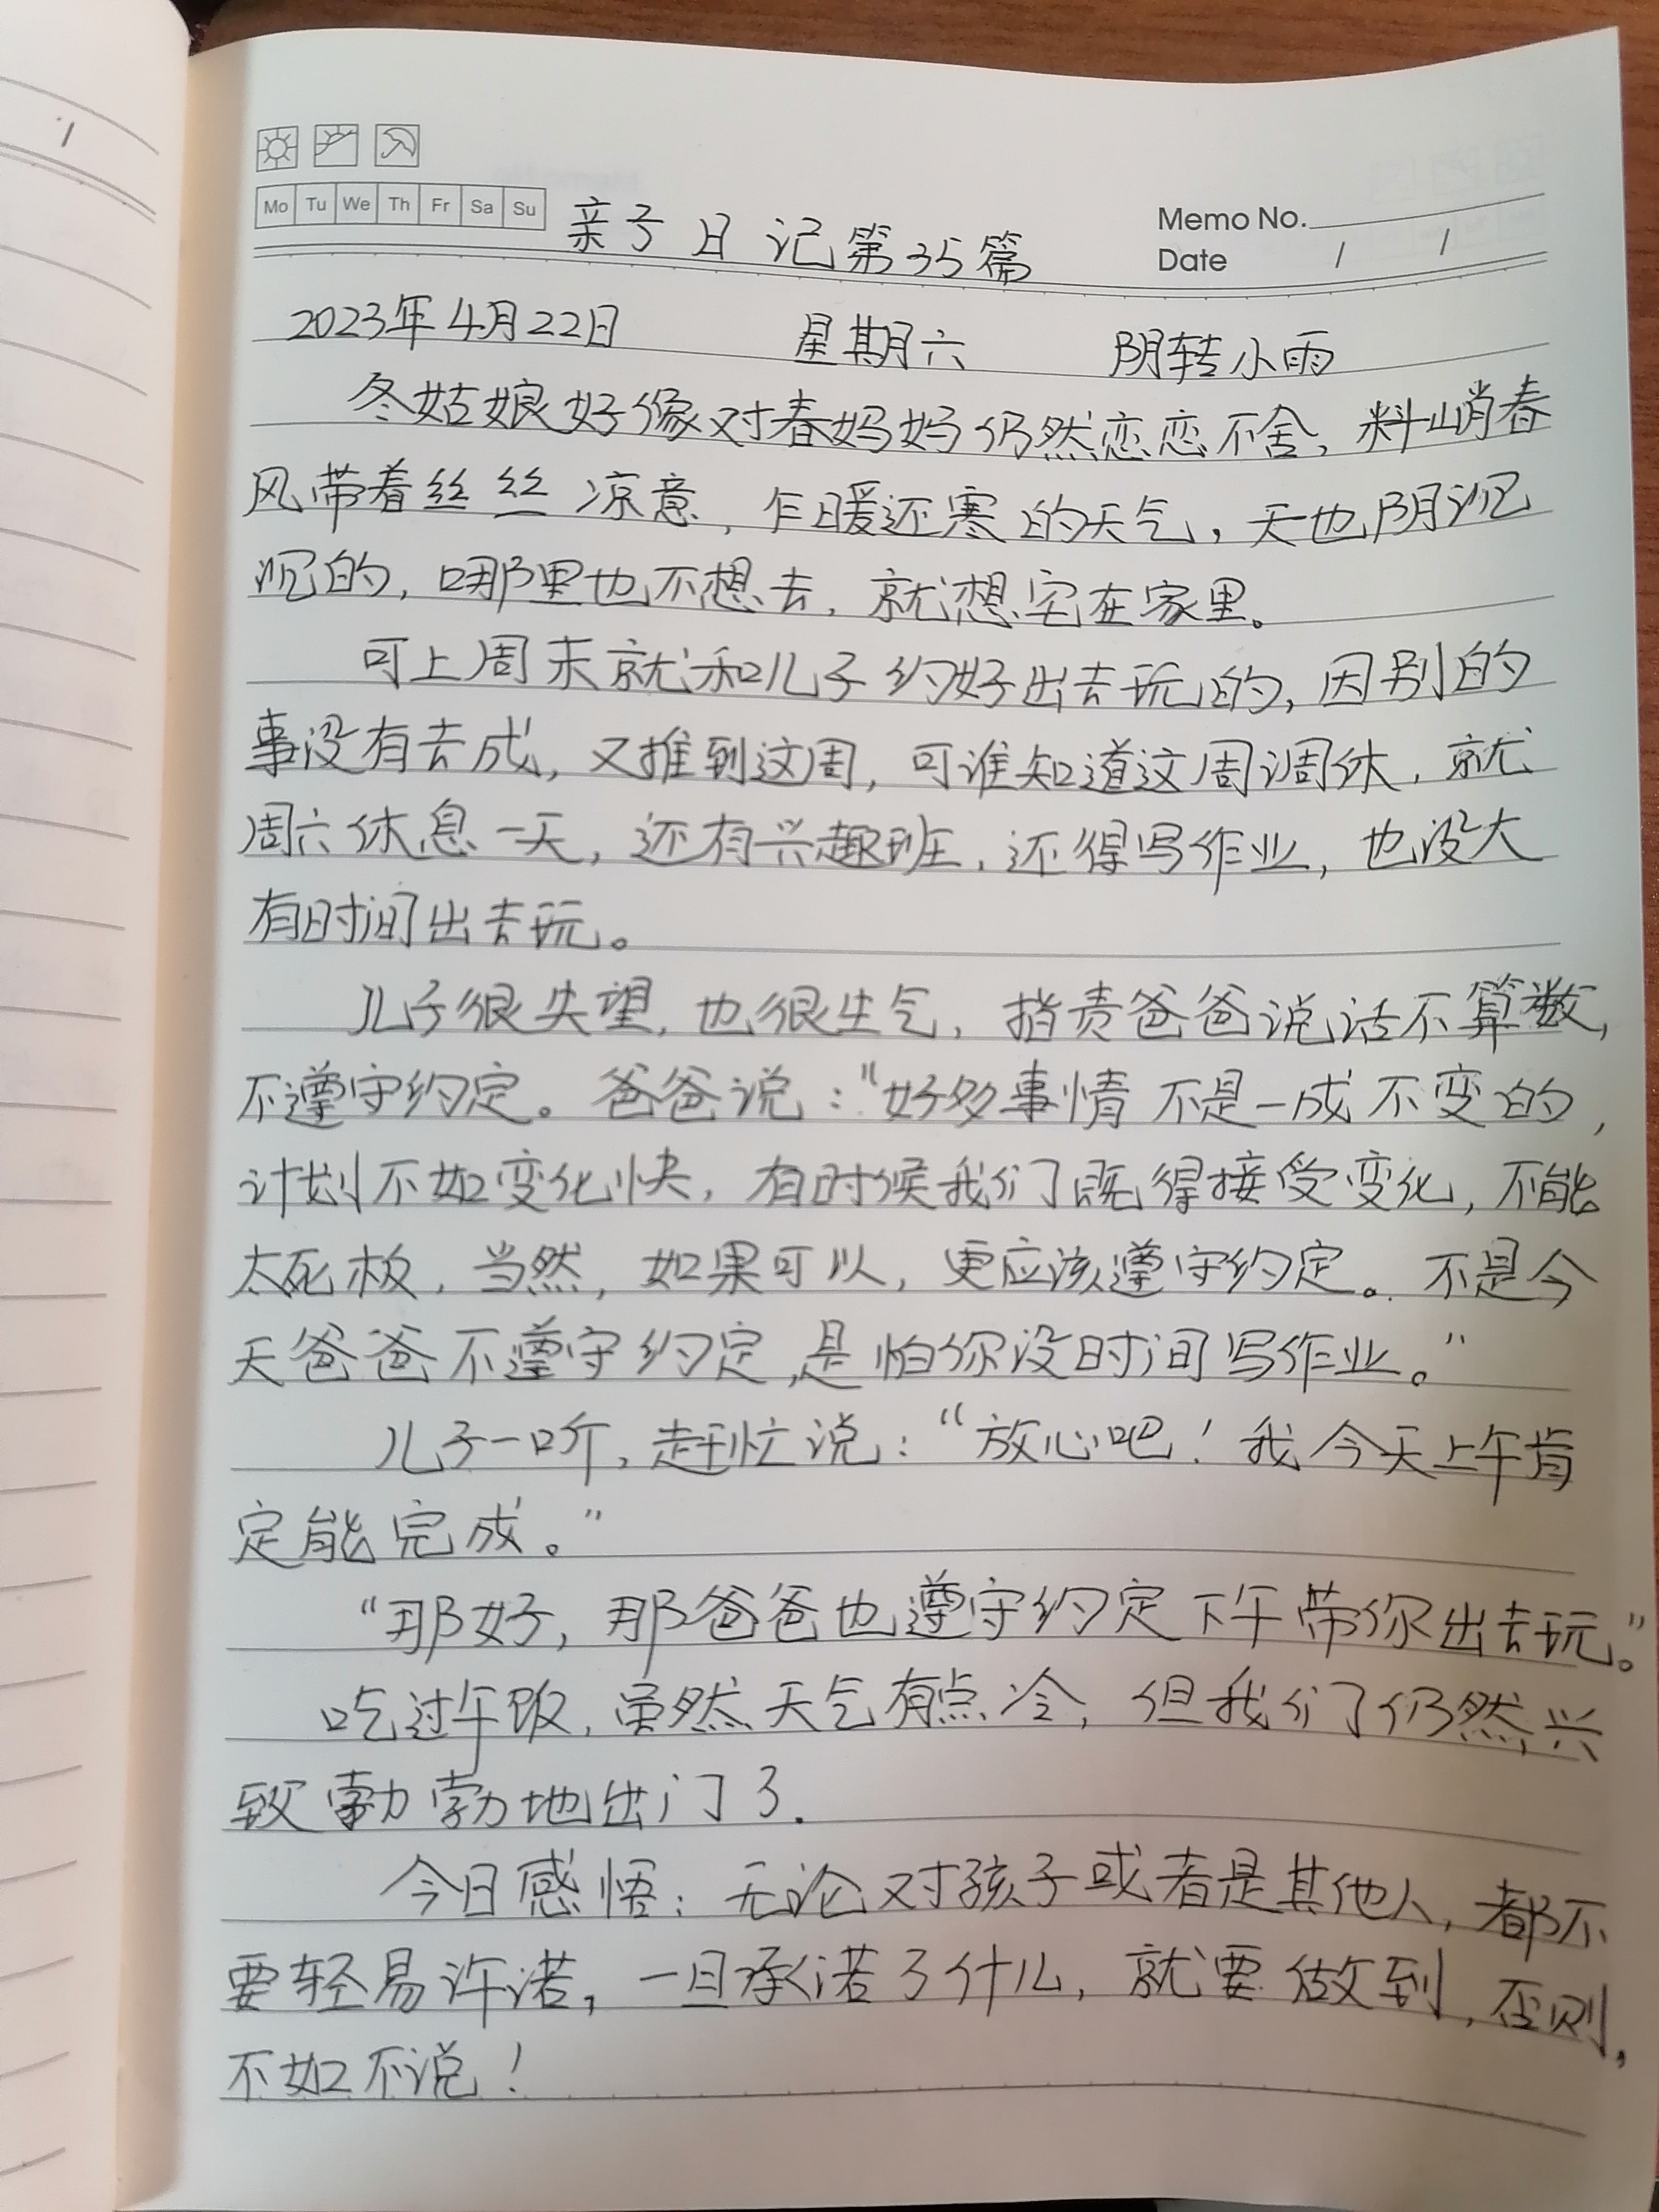 Mo Tu We Th Fr Sa Su
亲子日记第35篇
Memo No.
Date / /
2023年4月22日 星期六 阴转小雨
冬姑娘好像对春妈妈仍然恋恋不舍，料峭春
风带着丝丝凉意，乍暖还寒的天气，天也阴沉
沉的，哪里也不想去，就想宅在家里。
可上周末就和儿子约好出去玩的，因别的
事没有去成，又推到这周，可谁知道这周调休，就
周六休息一天，还有兴趣班，还得写作业，也没大
有时间出去玩。
儿子很失望，也很生气，指责爸爸说话不算数，
不遵守约定。爸爸说：“好多事情不是一成不变的，
计划不如变化快，有时候我们既得接受变化，不能
太死板，当然，如果可以，更应该遵守约定。不是今
天爸爸不遵守约定，是怕你没时间写作业。”
儿子一听，赶忙说：“放心吧！我今天上午肯
定能完成。”
“那好，那爸爸也遵守约定下午带你出去玩。”
吃过午饭，虽然天气有点冷，但我们仍然兴
致勃勃地出门了.
今日感悟：无论对孩子或者是其他人，都不
要轻易许诺，一旦承诺了什么，就要做到，否则，
不如不说！